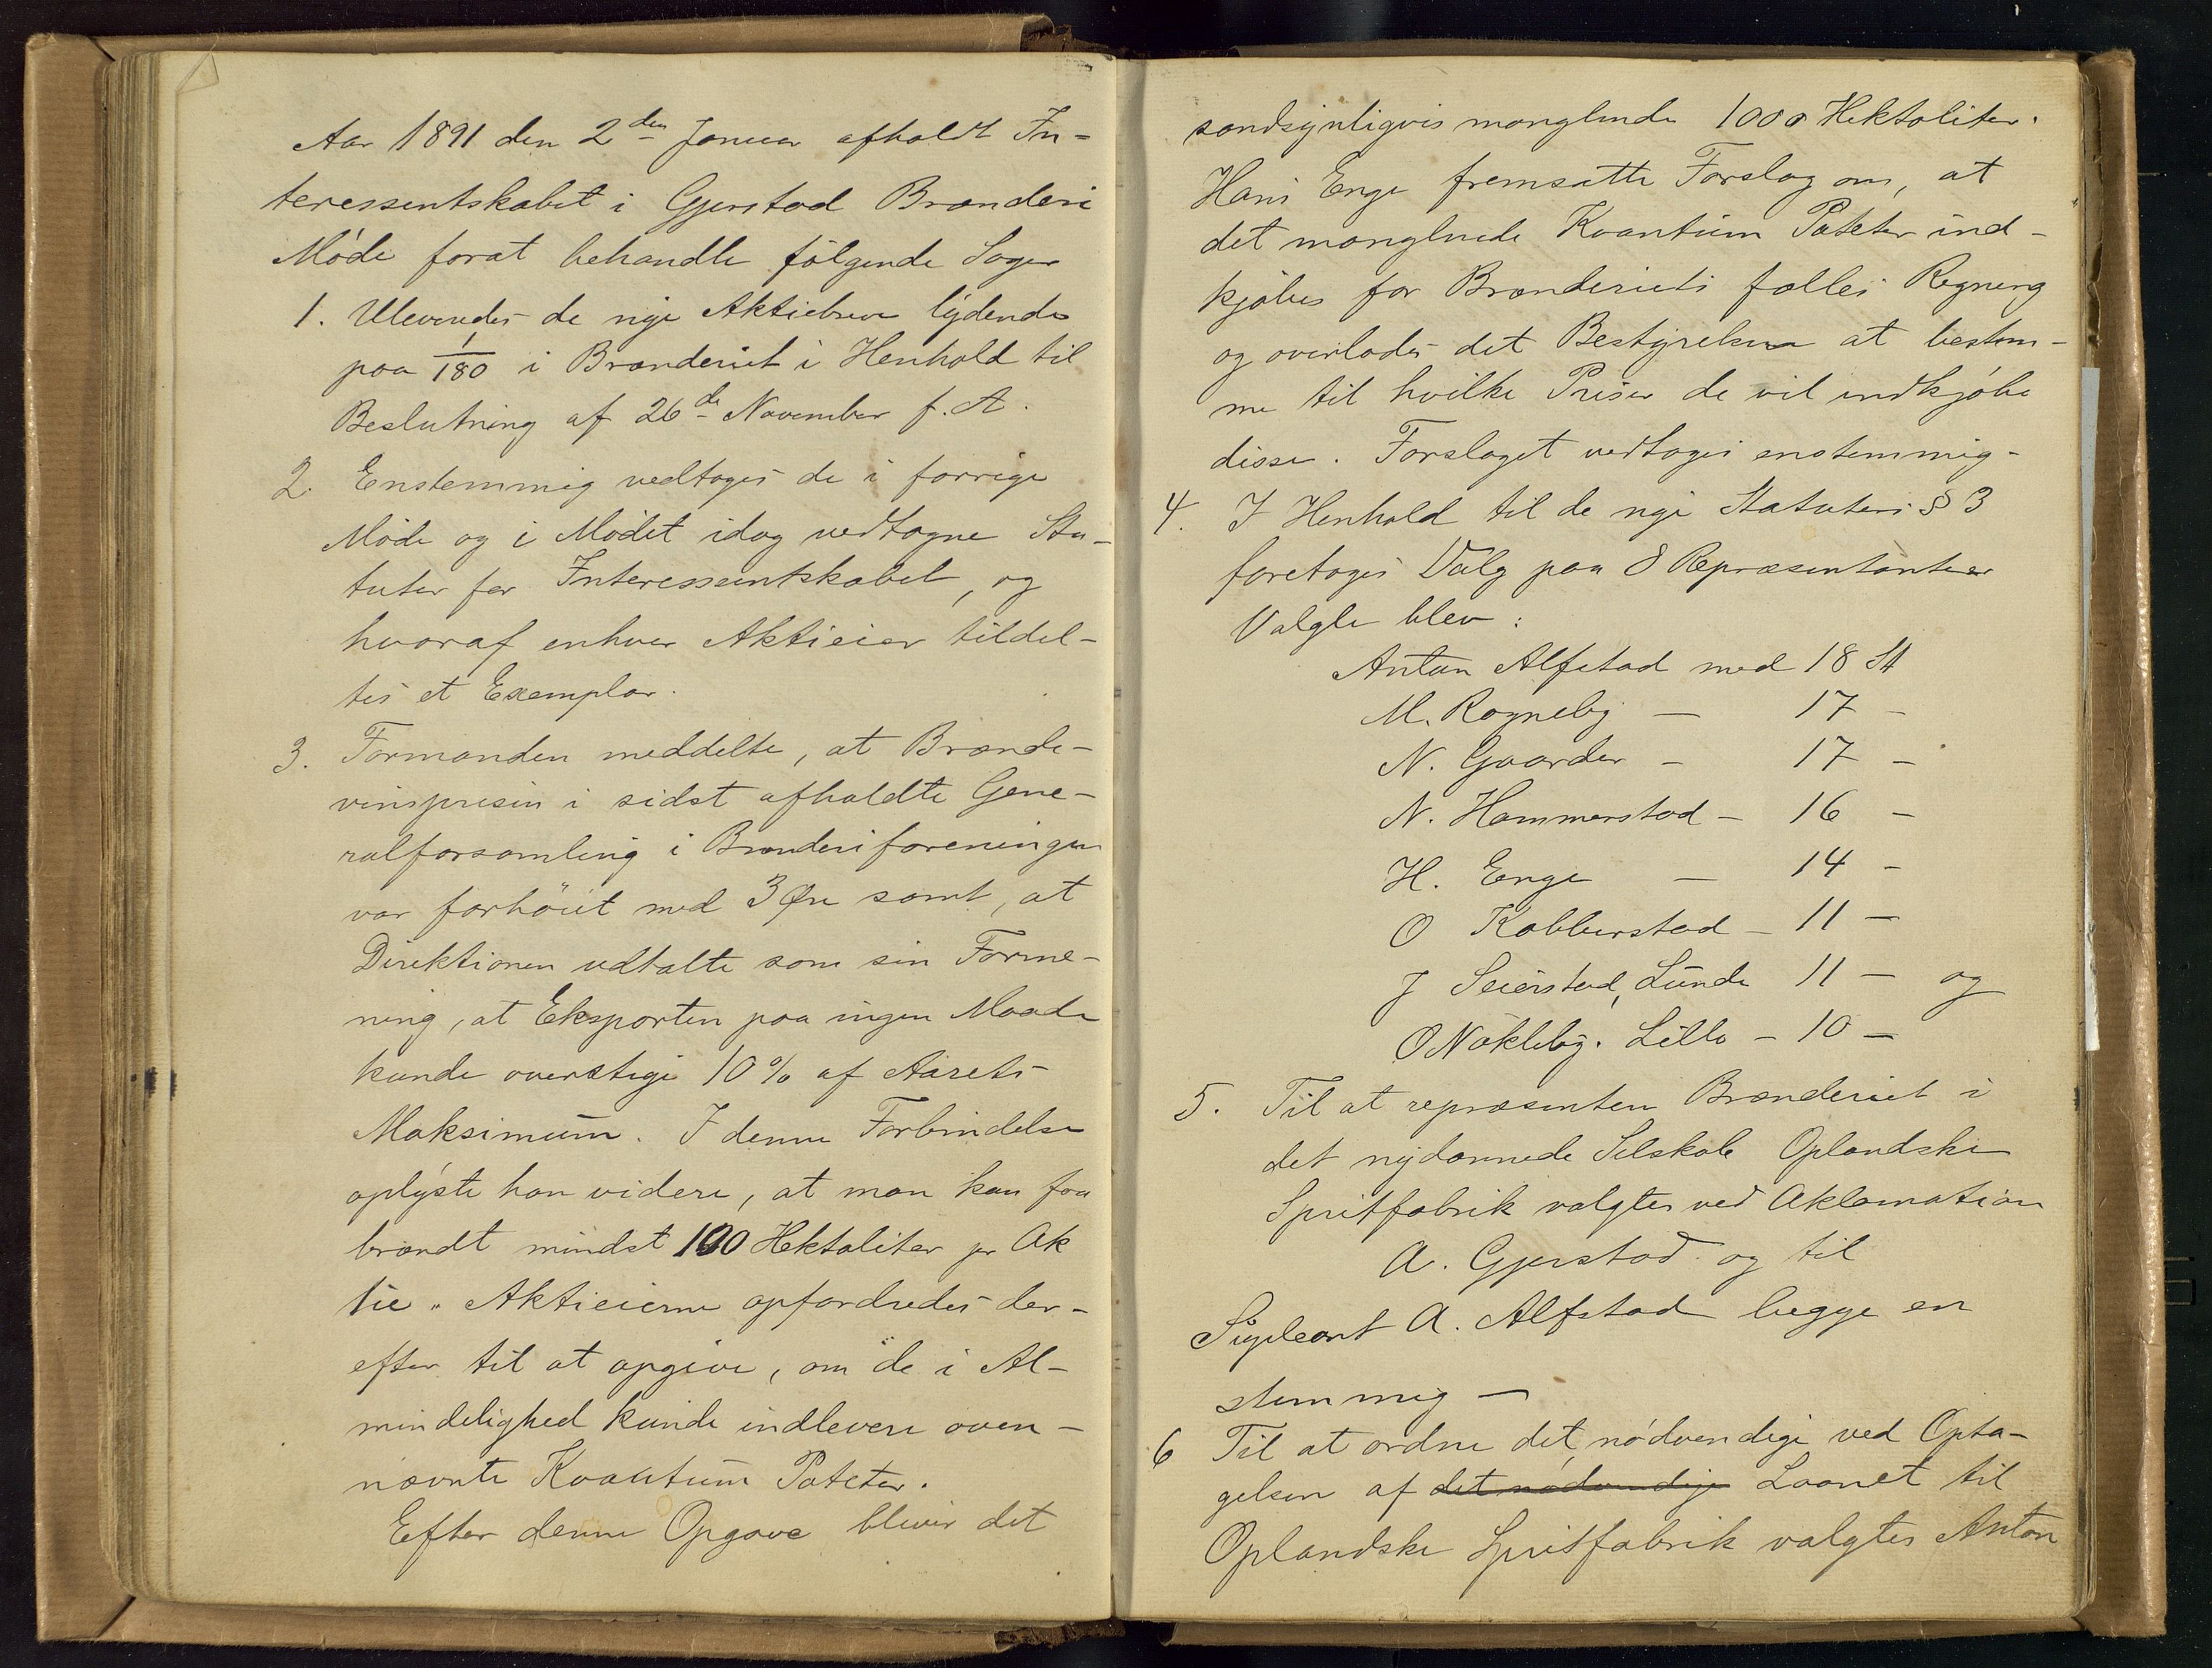 Aar 1891 den 2den Januar afholdt In-
teressentskabet i Gjerstad Brænderi
Møde forat behandle følgende Sager
1. Uleveredes de nye Aktiebreve lydende
paa 1/180 i Brænderiet i Henhold til
Beslutning af 26de November f. A.
2. Enstemmig vedtages de i forrige
Møde og i Mødet idag vedtagne Sta-
tuter for Interessentskabet, og
hvoraf enhver Aktieeier tildel-
tes et Exemplar.
3. Formanden meddelte, at Brænde-
vinsprisen i sidst afholdte Gene-
ralforsamling i Brænderiforeningen
var forhøiet med 3 Øre samt, at
Direktionen udtalte som sin Forme-
ning, at Eksporten paa ingen Maade
kunde overstige 10% af Aarets
Maksimum. I denne Forbindelse
oplyste han videre, at man kan faa
brændt mindst 100 Hektoliter pr Ak
tie. Aktieeierne opfordredes der-
efter til at opgive, om de i Al-
mindelighed kunde indlevere oven-
nævnte Kvantum Poteter.
Efter denne Opgave bliver det
sandsynligvis manglende 1000 Hektoliter.
Hans Enge fremsatte Forslag om, at
det manglende Kvantum Poteter ind-
kjøbes for Brænderiets fælles Regning
og overlodes det Bestyrelsen at bestem-
me til hvilke Priser de vil indkjøbe
disse. Forslaget vedtoges enstemmig-
4. I Henhold til de nye Statuters § 3
foretoges Valg paa 8 Repræsentanter
Valgte blev:
Anton Alfstad med 18 St
M. Rogneby — 17 -
N. Gaarder - 17 -
N. Hammerstad - 16 -
H. Enge — 14 -
O Kobberstad - 11 -
J Seierstad, Lunde 11 - og
O Nøkleby. Lille - 10 -
5. Til at repræsentere Brænderiet i
det nydannede Selskab Oplandske
Spritfabrik valgtes ved Aklamation
A. Gjerstad og til
Supleant A. Alfstad begge en
stemmig —
6 Til at ordne det nødvendige ved Opta-
gelsen af det nødvendige Laanet til
Oplandske Spritfabrik valgtes Anton